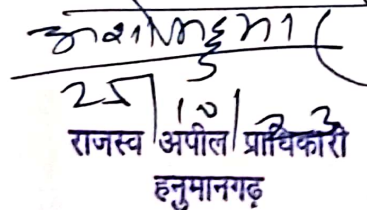 अशोक कुमार
25/10/23
राजस्व अपील प्राधिकारी
हनुमानगढ़